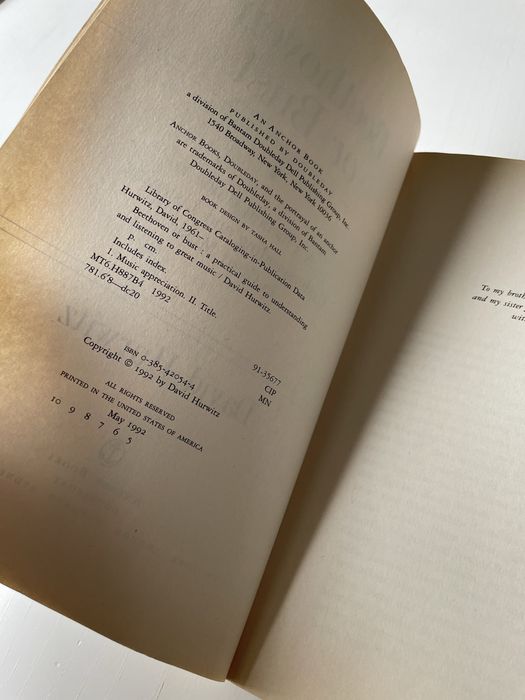 AN ANCHOR BOOK
PUBLISHED BY DOUBLEDAY
a division of Bantam Doubleday Dell Publishing Group, Inc.
1540 Broadway, New York, New York 10036
ANCHOR BOOKS, DOUBLEDAY, and the portrayal of an anchor
are trademarks of Doubleday, a division of Bantam
Doubleday Dell Publishing Group, Inc.
BOOK DESIGN BY TASHA HALL
Library of Congress Cataloging-in-Publication Data
Hurwitz, David, 1961–
Beethoven or bust : a practical guide to understanding
and listening to great music / David Hurwitz.
p. cm.
Includes index.
1. Music appreciation. II. Title.
MT6.H887B4 1992
781.6'8—dc20 91-35677
CIP
MN
ISBN 0-385-42054-4
Copyright © 1992 by David Hurwitz
ALL RIGHTS RESERVED
PRINTED IN THE UNITED STATES OF AMERICA
May 1992
10 9 8 7 6 5
To my
and my sister